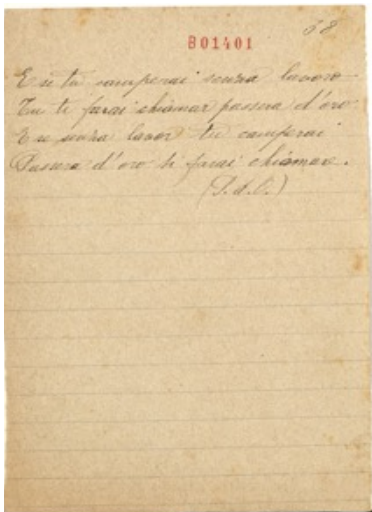 68
B01401
E se tu camperai senza lavoro
Tu ti farai chiamar passera d'oro
E se senza lavor tu camperai
Passera d'oro ti farai chiamare.